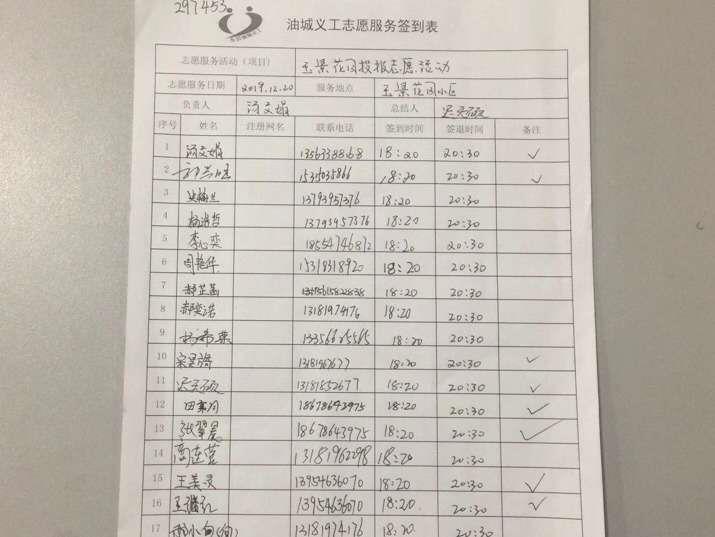 297453
油城义工志愿服务签到表
志愿服务活动(项目) 玉景花园投报志愿活动
志愿服务日期 2019.12.20 服务地点 玉景花园小区
负责人 汤文娟 总结人
序号 姓名 注册网名 联系电话 签到时间 签退时间 备注
1 汤文娟 13563388268 18:20 20:30 ✓
2 15315035866 18:20 20:30 ✓
3 13793957376 18:20 20:30
4 杨浩哲 13793957376 18:20 20:30
5 李心奕 18554746812 18:20 20:30
6 周艳华 15318318920 18:20 20:30
7 18:20 20:30
8 郝奕诺 13181974176 18:20 20:30
9 杨希栗 13356625565 18:20 20:30
10 18:20 20:30 ✓
11 13181852677 18:20 20:30 ✓
12 18678642975 18:20 20:30 ✓
13 张翠晨 18678643975 18:20 20:30 ✓
14 高连营 13181962298 18:20 20:30
15 王美灵 13954636070 18:20 20:30 ✓
16 13954636070 18:20 20:30 ✓
17 13181974176 18:20 20:30